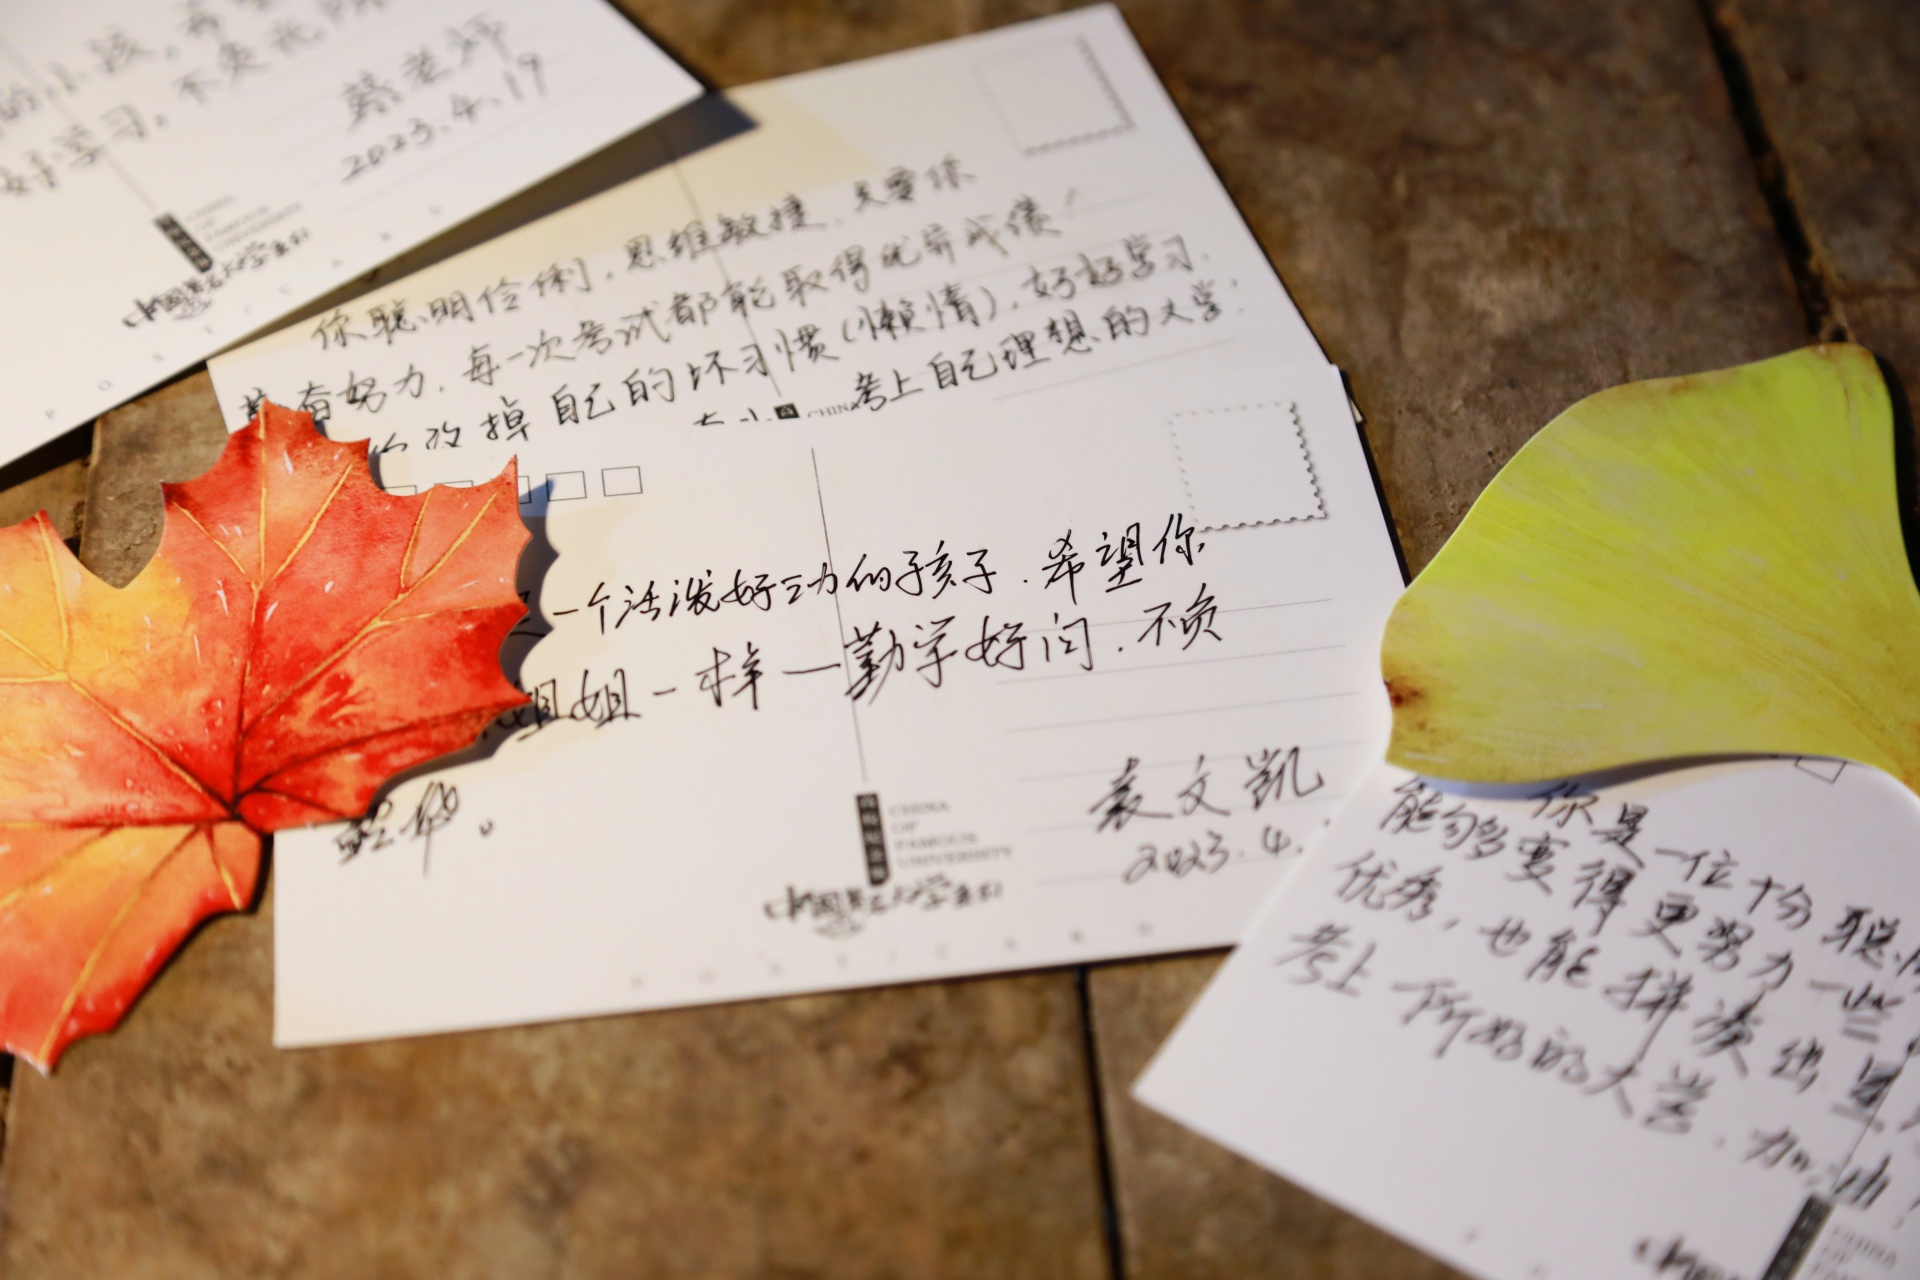 的小孩,希望
好学习,不负光阴
蔡老师
2023.4.19
CHINA
OF
FAMOUS
UNIVERSITY
你聪明伶俐,思维敏捷,只要你
有努力,每一次考试都能取得优异成绩!
你改掉自己的坏习惯(懒惰),好好学习,
考上自己理想的大学!
CHINA
一个活泼好动的孩子,希望你
姐姐一样一勤学好问,不负
韶华。
袁文凯
2023.4.
CHINA
OF
FAMOUS
UNIVERSITY
POSTCARD
你是一位十分聪
能够变得更努力一些
优秀,也能拼凑出星
考上一所好的大学,加油!
CHINA
OF